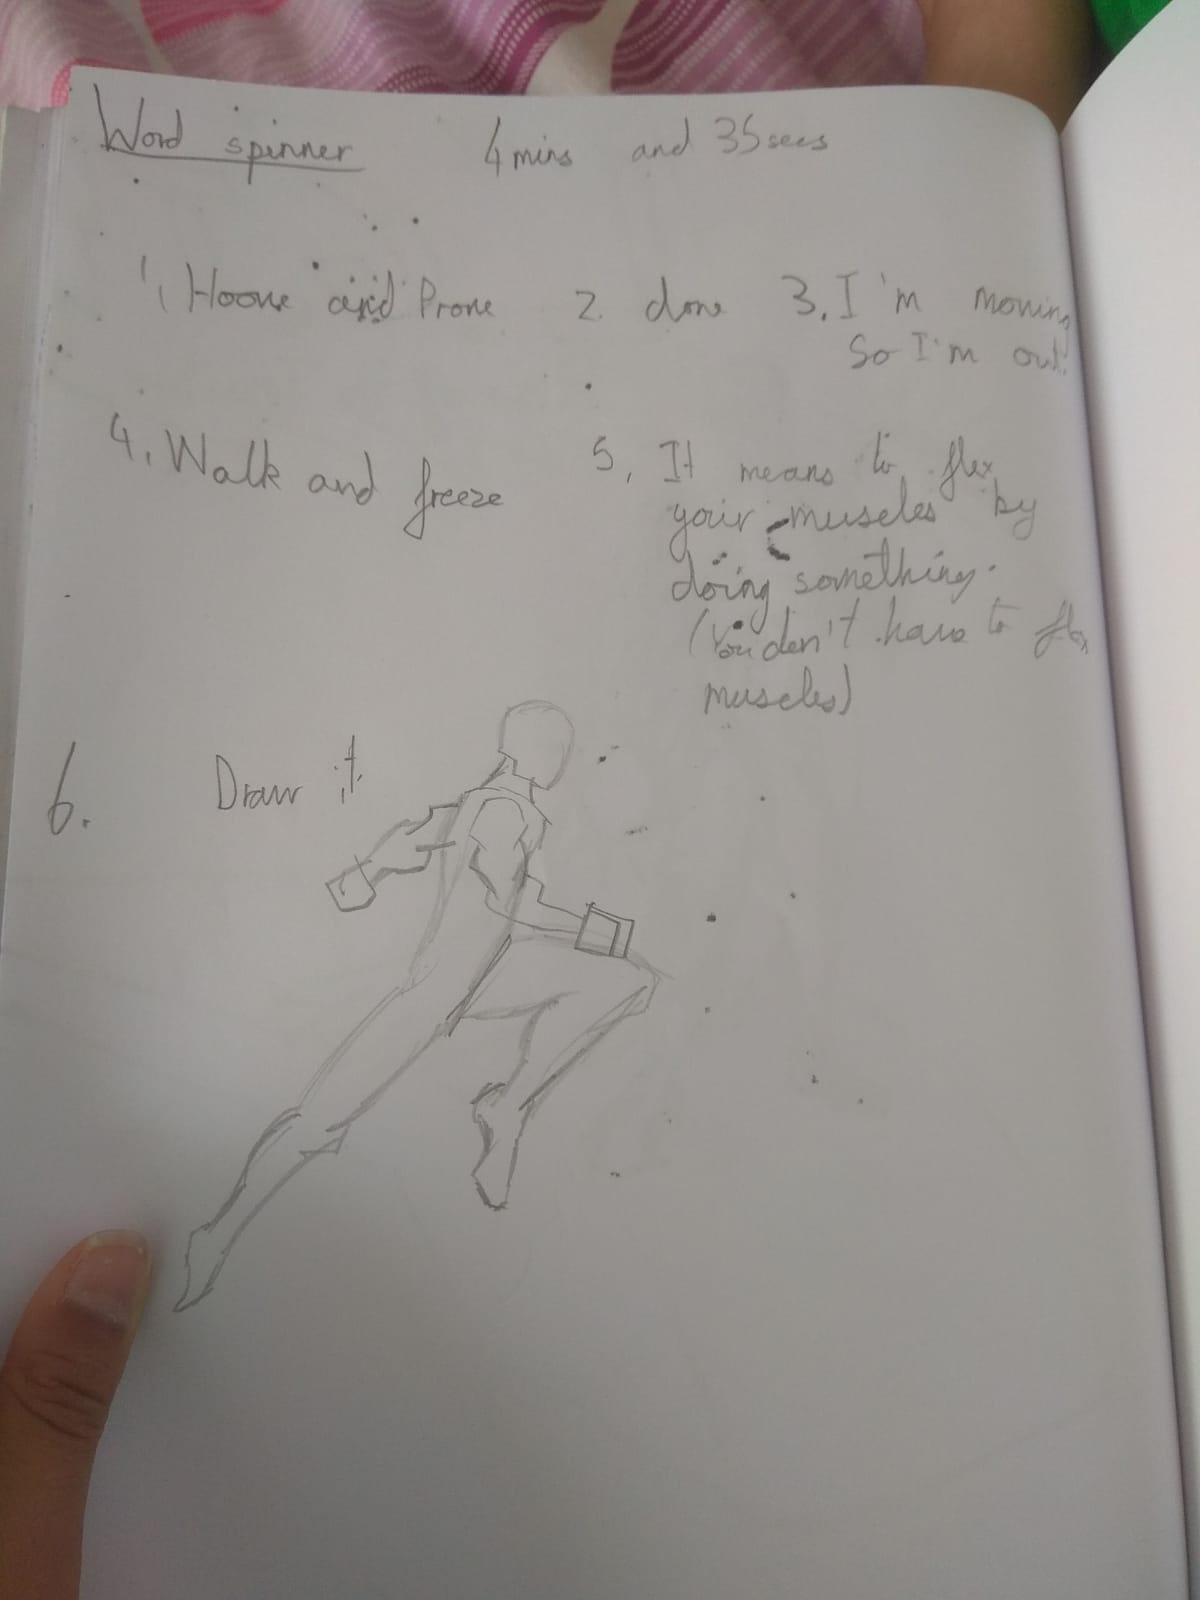 Word spinner 4 mins and 35 secs
1, Hoove and Prone 2. done 3. I'm moving
So I'm out.
4. Walk and freeze 5, It means to flex
your muscles by
doing something.
(You don't have to flex
muscles)
6. Draw it